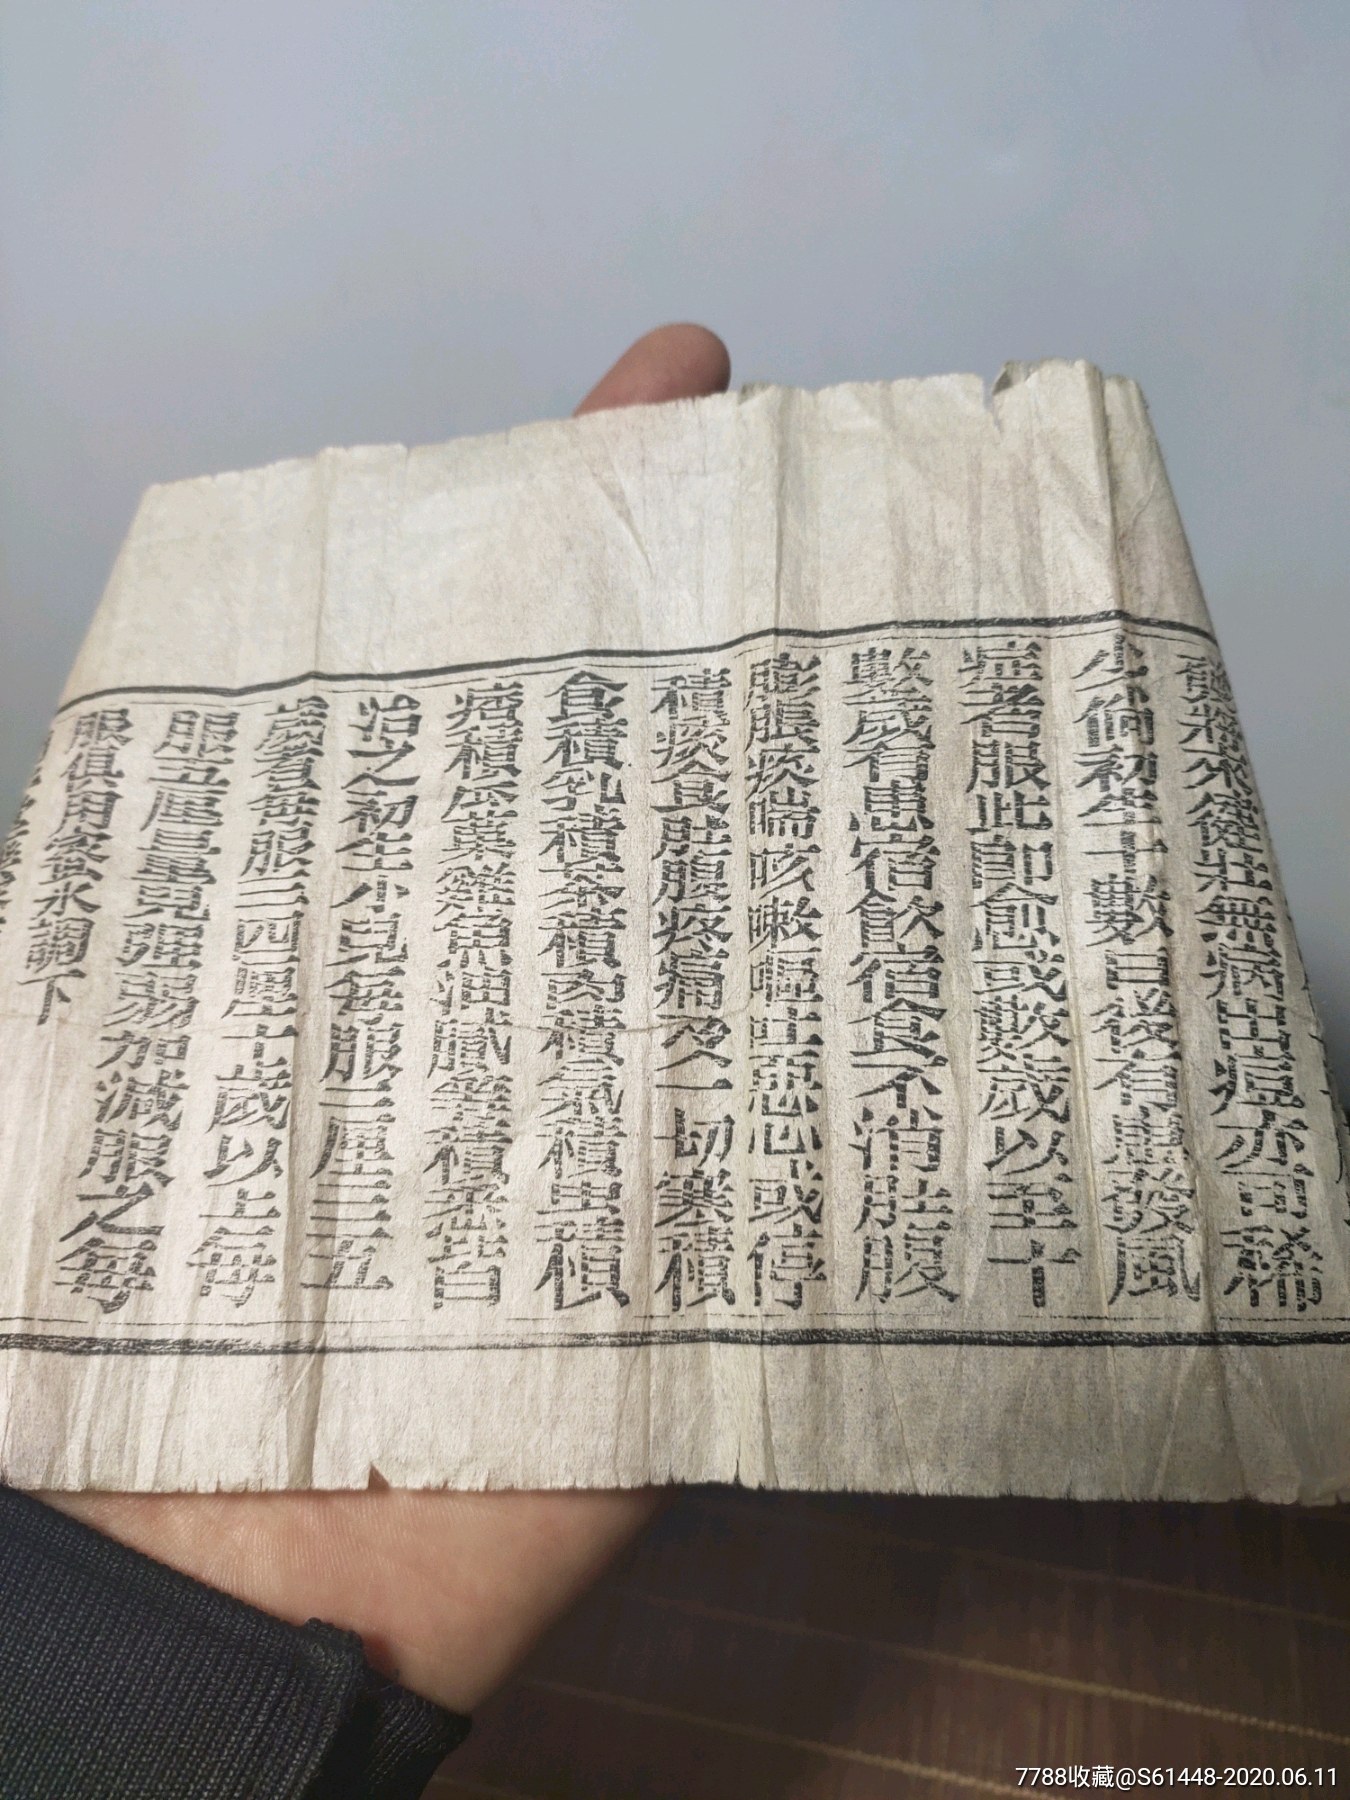 將來健壯無病出痘亦可稀
少倘初生十數日後有驚發風
症者服此卽愈或數歲以至十
數歲有患宿飲宿食不消肚腹
膨脹痰喘咳嗽嘔吐惡心或停
積痰食肚腹疼痛及一切寒積
食積乳積茶積肉積氣積虫積
痞積瓜菓雞魚油膩等積悉皆
治之初生小兒每服二厘三五
歲者每服三四厘十歲以上每
服五厘量兒强弱加減服之每
服俱用蜜水調下
7788收藏@S61448-2020.06.11